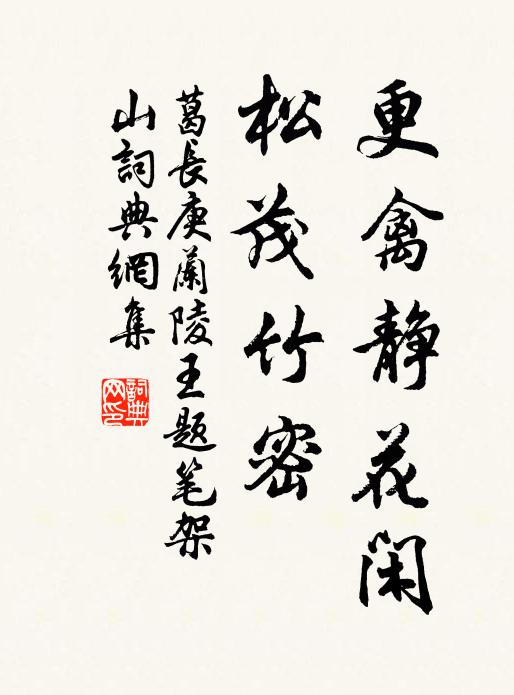 更禽静花闲
松茂竹密
葛長庚蘭陵王题笔架
山詞典網集
詞典
网印